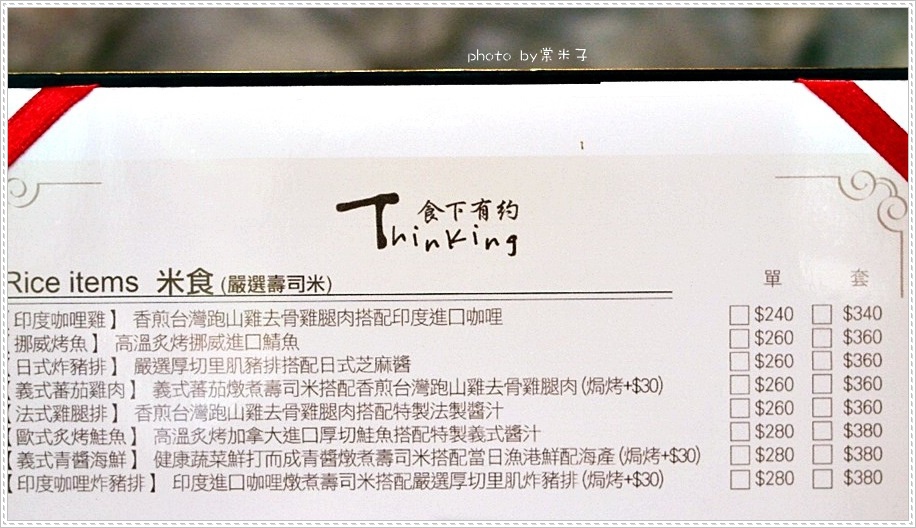 photo by棠米子
食下有約
Thinking
Rice items 米食 (嚴選壽司米) 單 套
【印度咖哩雞】 香煎台灣跑山雞去骨雞腿肉搭配印度進口咖哩 $240 $340
【挪威烤魚】 高溫炙烤挪威進口鯖魚 $260 $360
【日式炸豬排】 嚴選厚切里肌豬排搭配日式芝麻醬 $260 $360
【義式蕃茄雞肉】 義式蕃茄燉煮壽司米搭配香煎台灣跑山雞去骨雞腿肉 (焗烤+$30) $260 $360
【法式雞腿排】 香煎台灣跑山雞去骨雞腿肉搭配特製法製醬汁 $260 $360
【歐式炙烤鮭魚】 高溫炙烤加拿大進口厚切鮭魚搭配特製義式醬汁 $280 $380
【義式青醬海鮮】 健康蔬菜鮮打而成青醬燉煮壽司米搭配當日漁港鮮配海產 (焗烤+$30) $280 $380
【印度咖哩炸豬排】 印度進口咖哩燉煮壽司米搭配嚴選厚切里肌炸豬排 (焗烤+$30) $280 $380